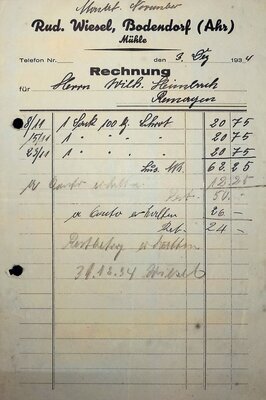 Monat November
Rud. Wiesel, Bodendorf (Ahr)
Mühle
Telefon Nr. den 3. Dez 1934
Rechnung
für Herrn Wilh. Heimbach
Remagen
8/11 1 Sack 100 Kg. Schrot 20 75
15/11 1 " " " 20 75
23/11 1 " " " 20 75
62.25
a Conto erhalten 12.25
Rest. 50.-
a Conto erhalten 26 -
Rest. 24 -
Restbetrag erhalten
31.12.34 Wiesel